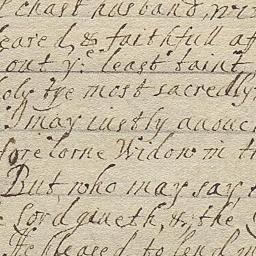 chast husband, wi
eared, & faithfull af
out yᵉ least taint
holy tye most sacredly
I may iustly auouc
forelorne Widow in t
But who may say
Lord giueth, & the
He pleased to lend m